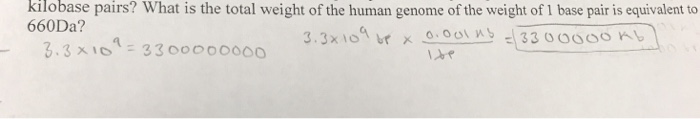 kilobase pairs? What is the total weight of the human genome of the weight of 1 base pair is equivalent to
660Da?
3.3x10⁹ = 3300000000
3.3x10⁹ bp x 0.001 kb / 1bp = 3300000 kb